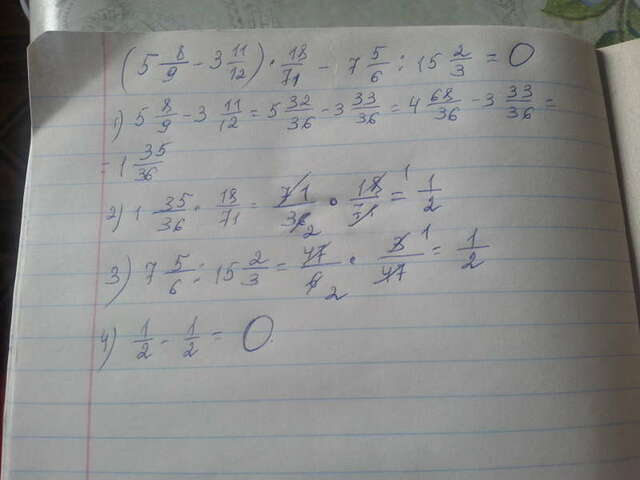 (5 8/9 - 3 11/12) · 18/71 - 7 5/6 : 15 2/3 = 0
1) 5 8/9 - 3 11/12 = 5 32/36 - 3 33/36 = 4 68/36 - 3 33/36 =
= 1 35/36
2) 1 35/36 · 18/71 = 71/36 2 · 18/71 = 1 1/2
3) 7 5/6 : 15 2/3 = 47/6 2 · 3/47 1 = 1/2
4) 1/2 - 1/2 = 0.